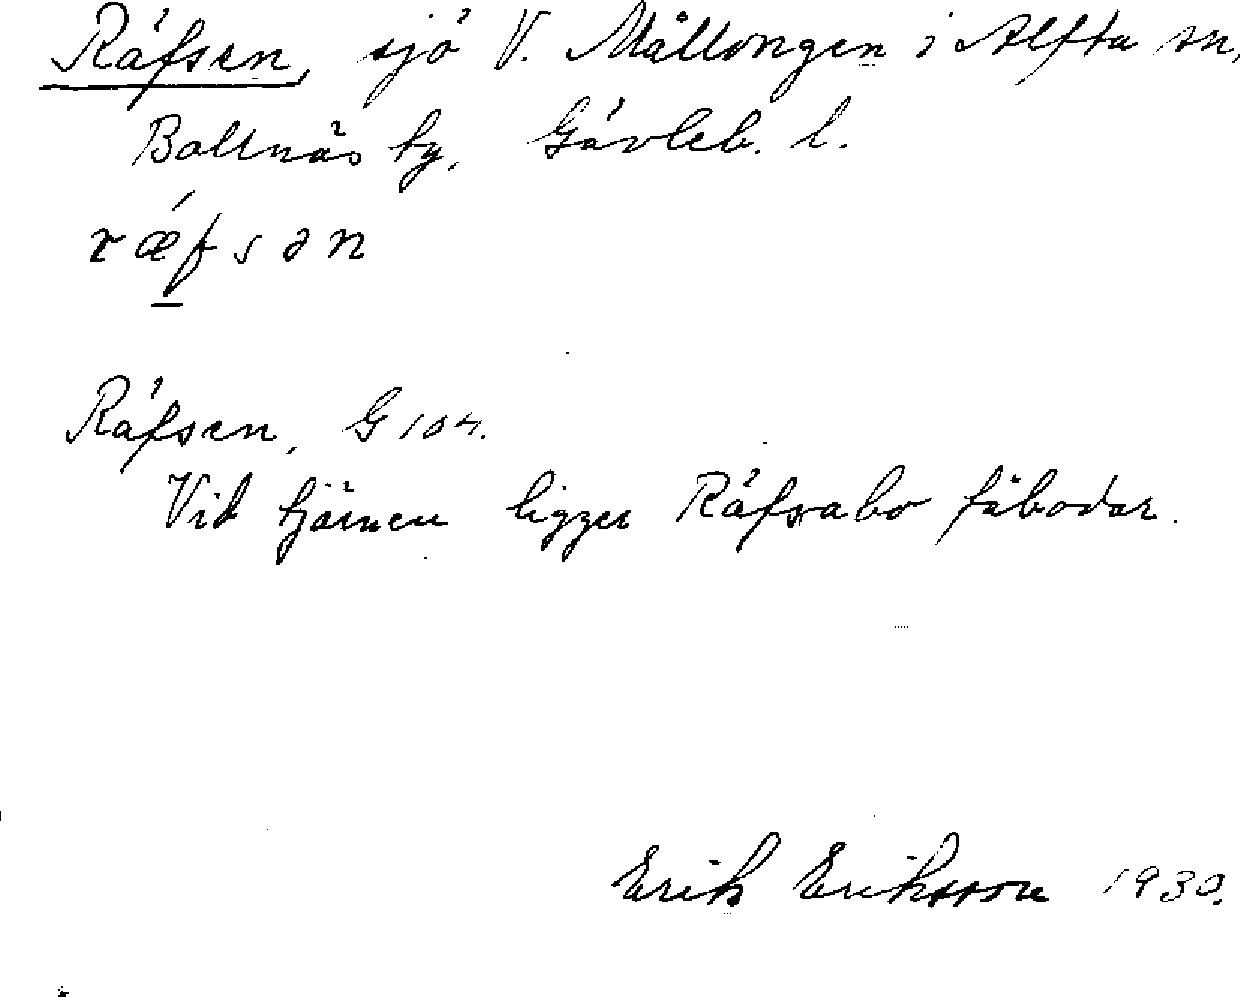 Räfsen, sjö V. Mållongen i Alfta sn,
Bollnäs tg, Gävleb. l.
rǽ̱fsən
Räfsen, G 104.
Vid tjärnen ligger Räfsabo fäbodar.
Erik Eriksson 1930.